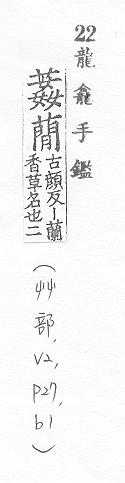 22龍龕手鑑
葌蕑古顔反丨蘭
香草名也二
(艸部,V2,P27,b1)